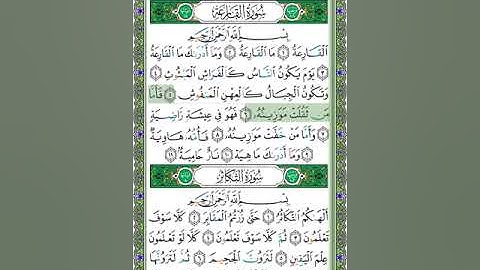 سُورَةُ القَارِعَةِ
بِسْمِ ٱللَّهِ ٱلرَّحْمَٰنِ ٱلرَّحِيمِ
ٱلْقَارِعَةُ ١ مَا ٱلْقَارِعَةُ ٢ وَمَآ أَدْرَىٰكَ مَا ٱلْقَارِعَةُ
٣ يَوْمَ يَكُونُ ٱلنَّاسُ كَٱلْفَرَاشِ ٱلْمَبْثُوثِ ٤
وَتَكُونُ ٱلْجِبَالُ كَٱلْعِهْنِ ٱلْمَنفُوشِ ٥ فَأَمَّا
مَن ثَقُلَتْ مَوَٰزِينُهُۥ ٦ فَهُوَ فِى عِيشَةٍ رَّاضِيَةٍ
٧ وَأَمَّا مَنْ خَفَّتْ مَوَٰزِينُهُۥ ٨ فَأُمُّهُۥ هَاوِيَةٌ
٩ وَمَآ أَدْرَىٰكَ مَا هِيَهْ ١٠ نَارٌ حَامِيَةٌۢ ١١
سُورَةُ التَّكَاثُرِ
بِسْمِ ٱللَّهِ ٱلرَّحْمَٰنِ ٱلرَّحِيمِ
أَلْهَىٰكُمُ ٱلتَّكَاثُرُ ١ حَتَّىٰ زُرْتُمُ ٱلْمَقَابِرَ ٢ كَلَّا سَوْفَ
تَعْلَمُونَ ٣ ثُمَّ كَلَّا سَوْفَ تَعْلَمُونَ ٤ كَلَّا لَوْ تَعْلَمُونَ
عِلْمَ ٱلْيَقِينِ ٥ لَتَرَوُنَّ ٱلْجَحِيمَ ٦ ثُمَّ لَتَرَوُنَّهَا